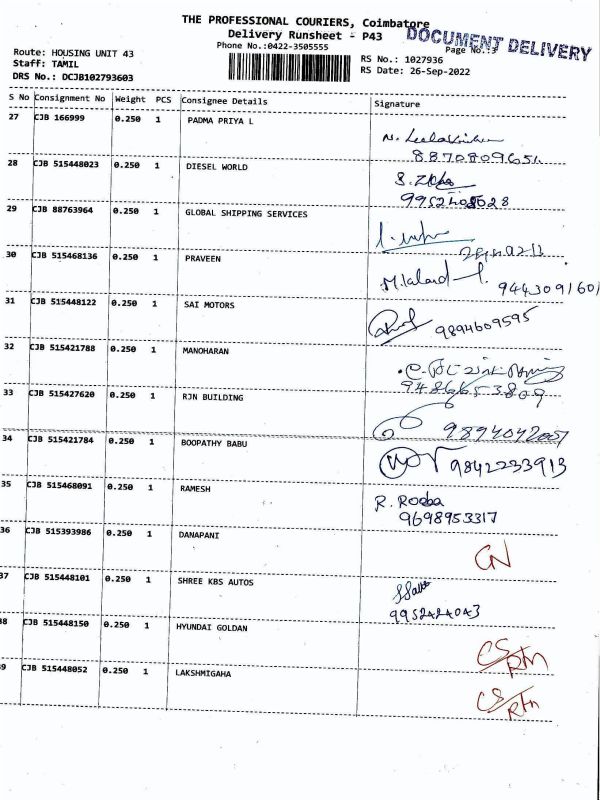 THE PROFESSIONAL COURIERS, Coimbatore
Delivery Runsheet - P43
DOCUMENT DELIVERY
Phone No.:0422-3505555
Page No.:3
Route: HOUSING UNIT 43
Staff: TAMIL
DRS No.: DCJB102793603
RS No.: 1027936
RS Date: 26-Sep-2022
S No Consignment No Weight PCS Consignee Details Signature
27 CJB 166999 0.250 1 PADMA PRIYA L
8870809651
28 CJB 515448023 0.250 1 DIESEL WORLD
29 CJB 88763964 0.250 1 GLOBAL SHIPPING SERVICES
30 CJB 515468136 0.250 1 PRAVEEN
9443091601
31 CJB 515448122 0.250 1 SAI MOTORS
9894609595
32 CJB 515421788 0.250 1 MANOHARAN
9486653809
33 CJB 515427620 0.250 1 RJN BUILDING
9894042007
34 CJB 515421784 0.250 1 BOOPATHY BABU
9842233913
35 CJB 515468091 0.250 1 RAMESH
R. Rooba
9698953317
36 CJB 515393986 0.250 1 DANAPANI
GN
37 CJB 515448101 0.250 1 SHREE KBS AUTOS
9952424043
38 CJB 515448150 0.250 1 HYUNDAI GOLDAN
CS/RTn
39 CJB 515448052 0.250 1 LAKSHMIGAHA
CS/RTn